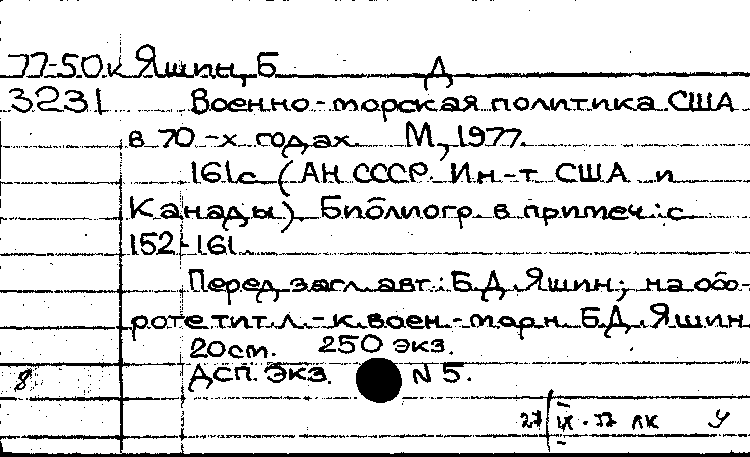 77-50к Яшин, Б Д
3231 Военно-морская политика США
в 70-х годах. М, 1977.
161с (АН СССР. Ин-т США и
Канады). Библиогр. в примеч: с
152-161.
Перед загл. авт: Б.Д. Яшин; на обо-
роте тит. л. - к. воен.-мор. н. Б.Д. Яшин
20 см. 250 экз.
8 ДСП. ЭКЗ. N 5.
27/IX-77 ЛК У